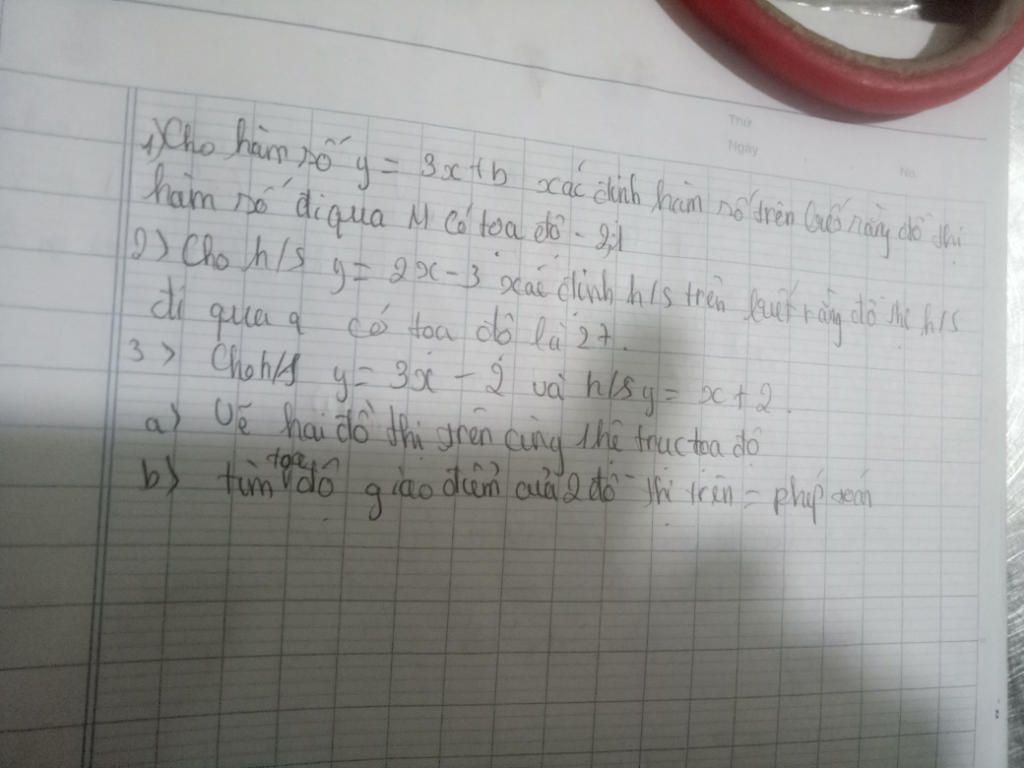 Thứ
Ngày
No.
1) Cho hàm số y = 3x+b xác định hàm số trên biết rằng đồ thị
hàm số đi qua M có tọa độ - 2;1
2) Cho h/s y = 2x - 3 xác định h/s trên biết rằng đồ thị h/s
đi qua q có tọa độ là 2 7.
3) Cho h/s y = 3x - 2 và h/s y = x + 2.
a) Vẽ hai đồ thị trên cùng 1 hệ trục tọa độ
b) tìm tọa độ giao điểm của 2 đồ thị trên = phép toán